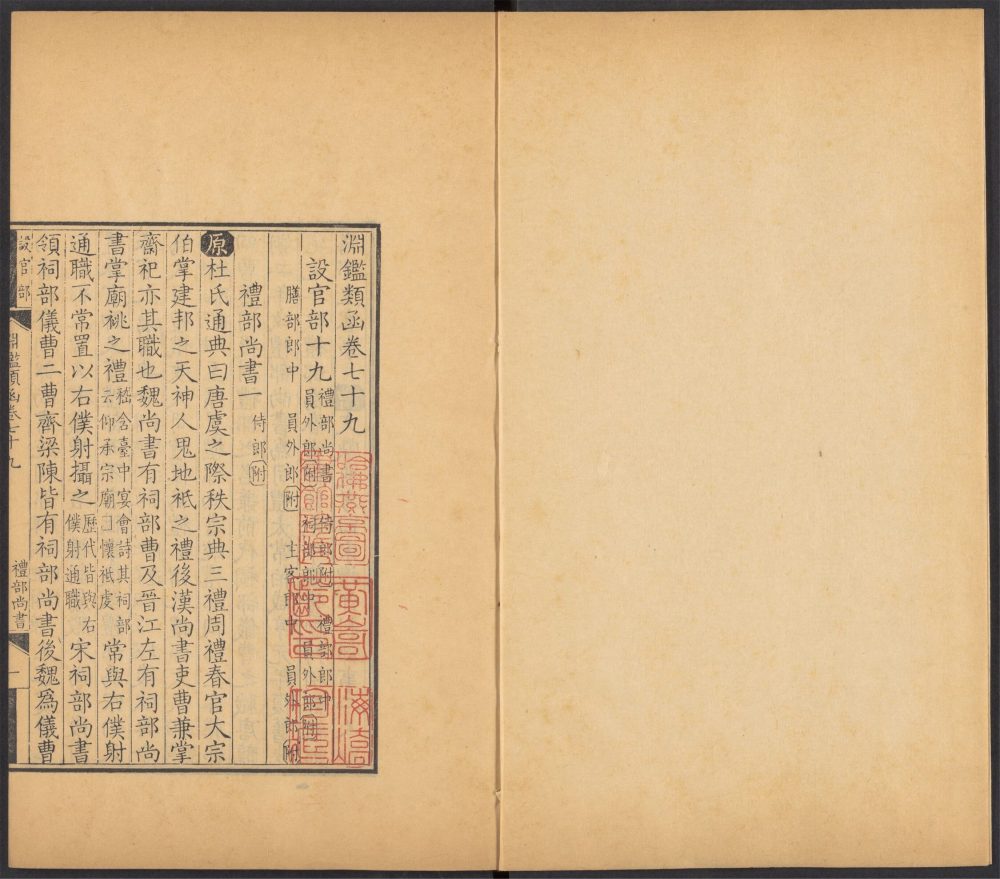 淵鑑類函卷七十九
設官部十九 禮部尚書 侍郎附 禮部郎中 員外郎附 祠部郎中 員外郎附
膳部郎中 員外郎附 主客郎中 員外郎附
禮部尚書一 侍郎附
原杜氏通典曰唐虞之際秩宗典三禮周禮春官大宗
伯掌建邦之天神人鬼地祇之禮後漢尚書吏曹兼掌
齋祀亦其職也魏尚書有祠部曹及晉江左有祠部尚
書掌廟祧之禮 嵇含臺中宴會詩其祠部云仰承宗廟 懷祇虔 常與右僕射
通職不常置以右僕射攝之 歷代皆與右僕射通職 宋祠部尚書
領祠部儀曹二曹齊梁陳皆有祠部尚書後魏爲儀曹
設官部 淵鑑類函卷七十九 禮部尚書 一